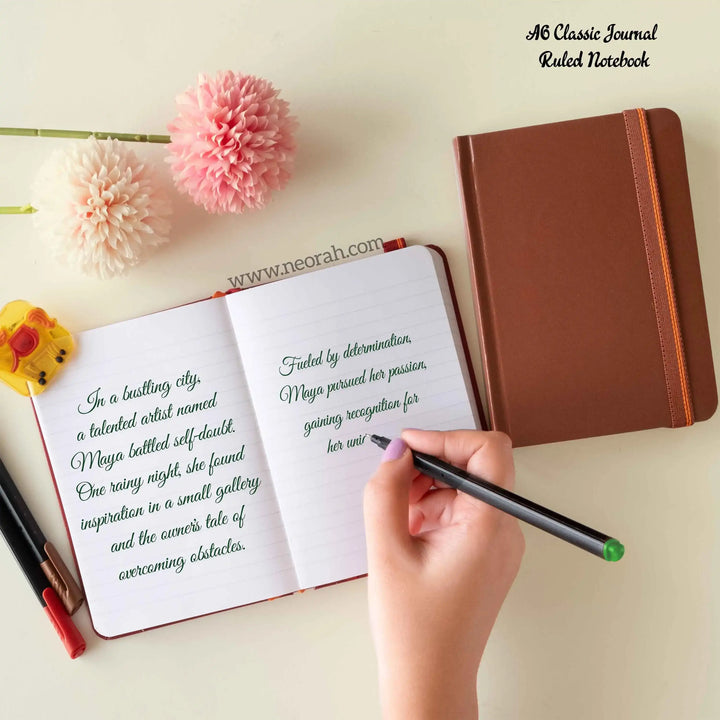 A6 Classic Journal
Ruled Notebook
www.neorah.com
In a bustling city,
a talented artist named
Maya battled self-doubt.
One rainy night, she found
inspiration in a small gallery
and the owner's tale of
overcoming obstacles.
Fueled by determination,
Maya pursued her passion,
gaining recognition for
her uni